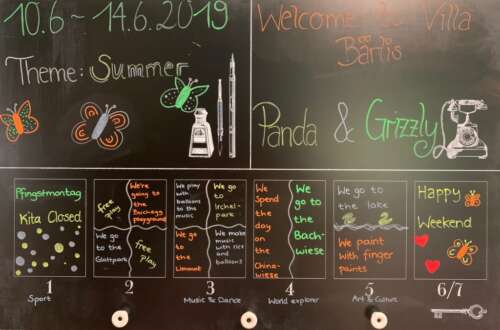 10.6 - 14.6.2019
Theme: Summer
Welcome to Villa
Bärlis
Panda & Grizzly
Pfingstmontag
Kita Closed
free
play
We're
going to
the
Bucheggplatz
playground
We go
to the
Glattpark
free
play
We play
with
balloons
to the
music
We go
to
Irchel-
park
We go
to
the
Limmat
We make
music
with rice
and
balloons
We
Spend
the
day
on
the
China-
wiese
We
go
to
the
Bach-
wiese
We go to
the lake
We paint
with finger
paints
Happy
Weekend
1
2
3
4
5
6/7
Sport
Music & Dance
World explorer
Art & Culture